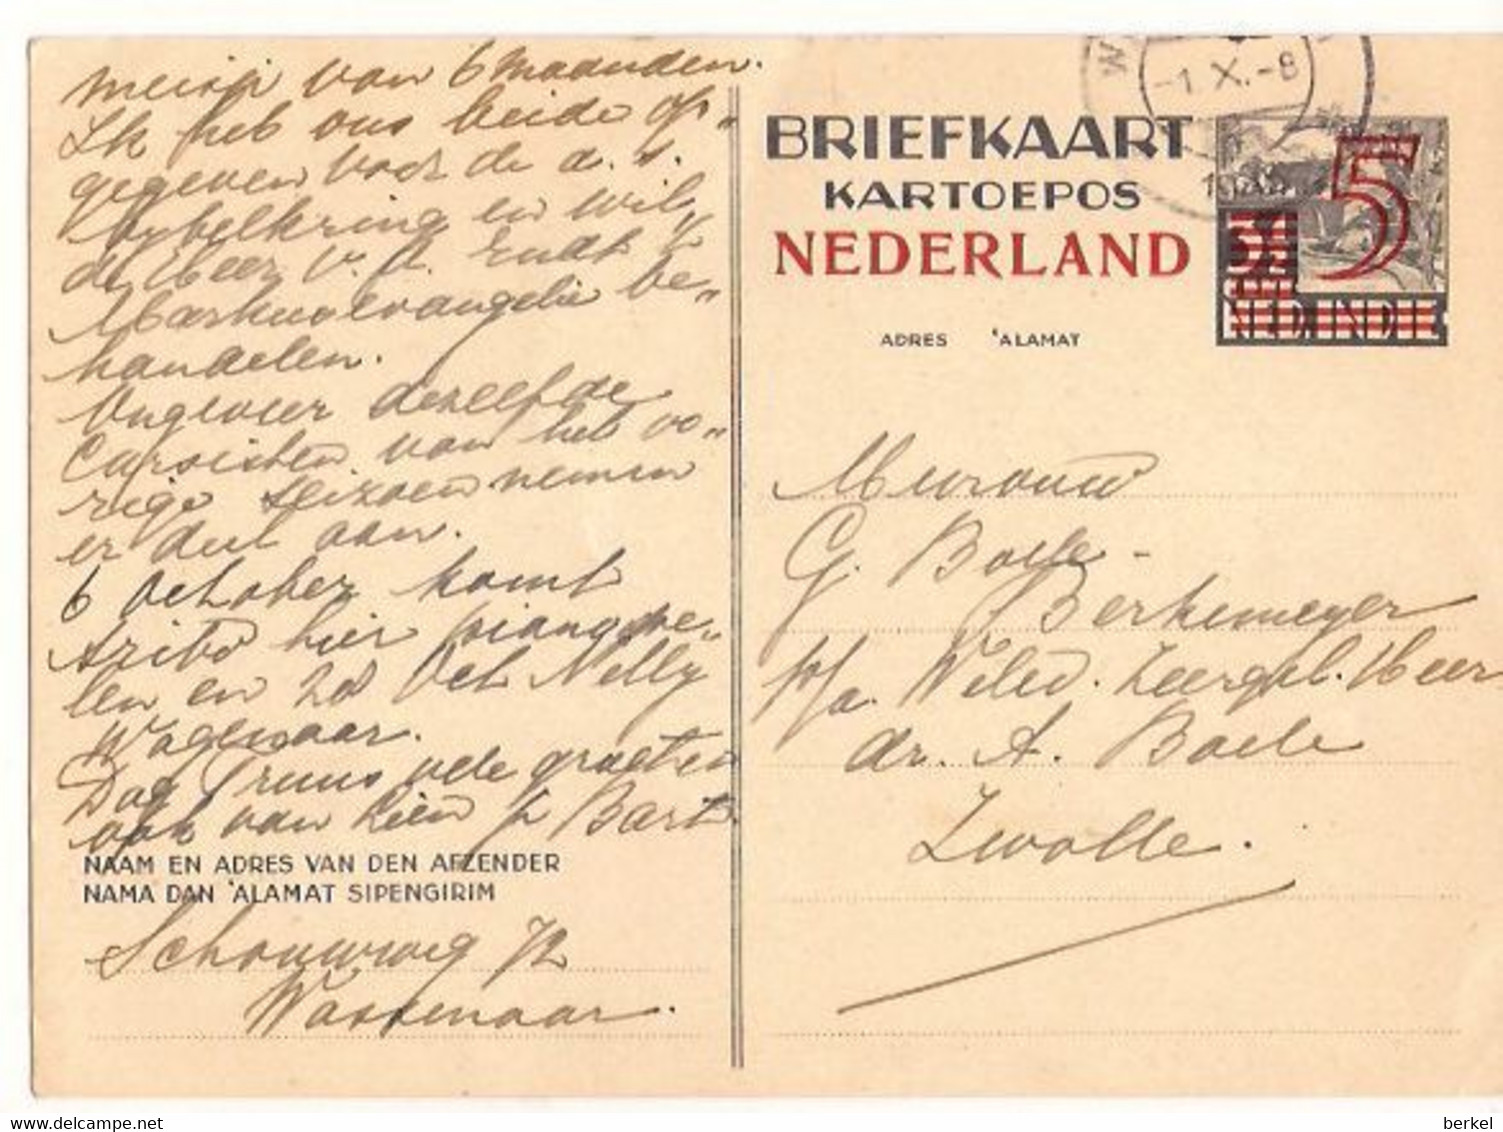 meisje van 6 maanden.
Ik heb ons beide op„
gegeven voor de a.s.
bybelkring en wil„
de Heer v. d. Endt 't
Markus evangelie be„
handelen.
Ongeveer dezelfde
Cursisten van het vo„
rige seizoen nemen
er deel aan.
6 October komt
hier piano spe„
len en 20 Oct Nelly
Wagenaar.
Dag Truus vele groeten
ook van Lien & Bart.
NAAM EN ADRES VAN DEN AFZENDER
NAMA DAN 'ALAMAT SIPENGIRIM
Schouwweg 72
Wassenaar.
W
-1.X.-8
BRIEFKAART
KARTOEPOS
NEDERLAND
5
NED. INDIE
ADRES 'ALAMAT
Mevrouw
G. Boele-
Berkemeyer
p/a. Weled. Zeergel. Heer
dr. A. Boele
Zwolle.
delcampe.net
berkel